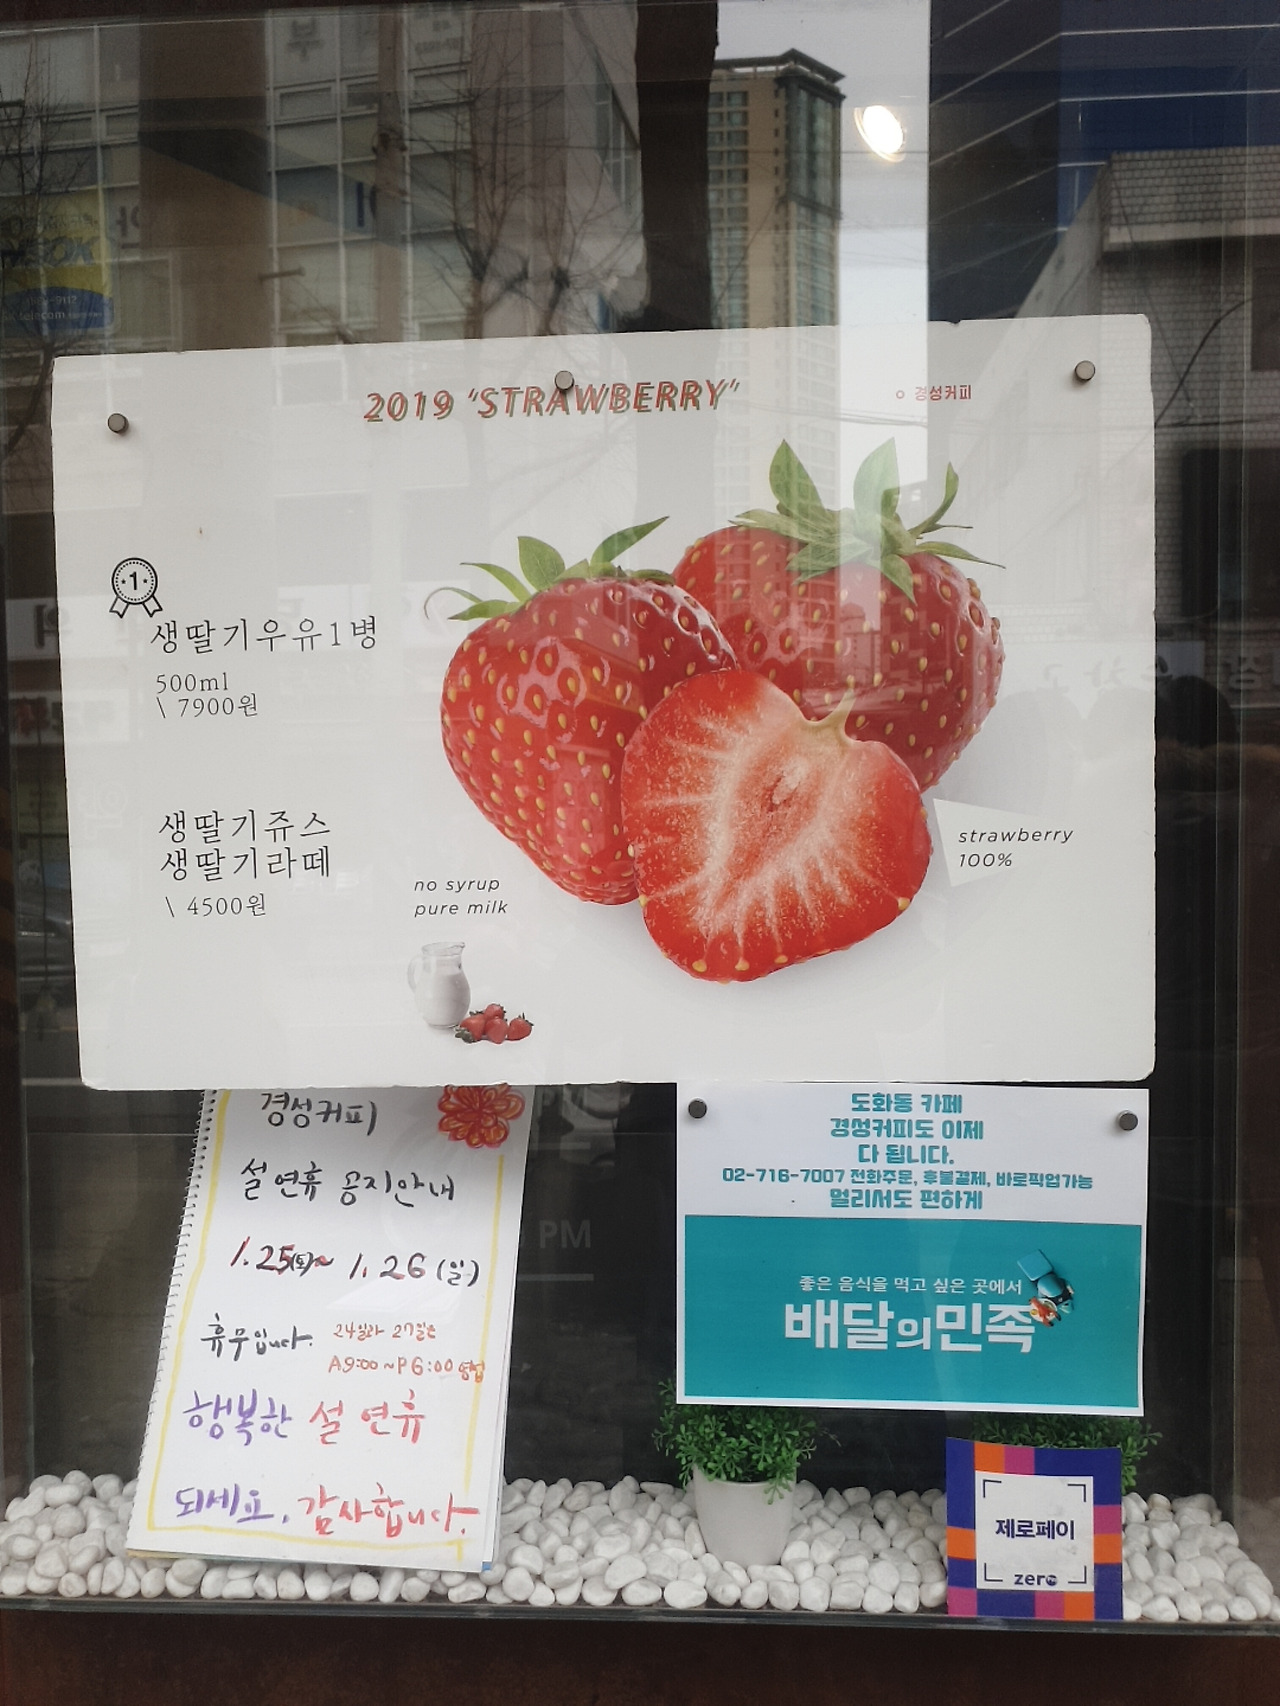 2019 'STRAWBERRY'
경성커피
1
생딸기우유1병
500ml
\ 7900원
생딸기쥬스
생딸기라떼
\ 4500원
no syrup
pure milk
strawberry
100%
경성커피
설 연휴 공지안내
1.25(토)~ 1.26(일)
휴무입니다.
24일과 27일은
A9:00~P6:00 영업
행복한 설 연휴
되세요. 감사합니다.
PM
도화동 카페
경성커피도 이제
다 됩니다.
02-716-7007 전화주문, 후불결제, 바로픽업가능
멀리서도 편하게
좋은 음식을 먹고 싶은 곳에서
배달의민족
제로페이
zero
telecom